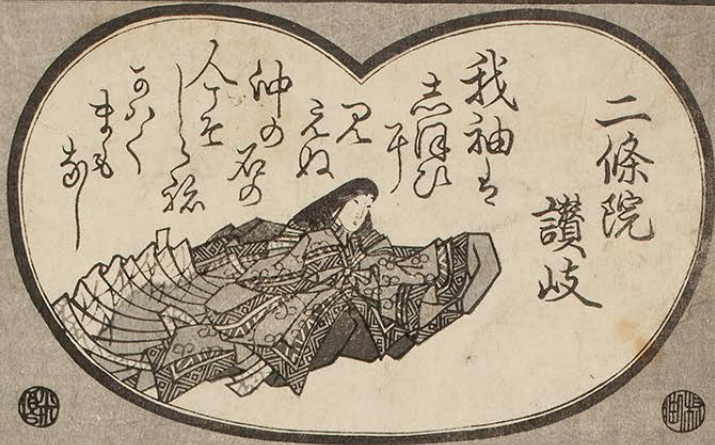 二條院
讚岐
我袖は
志ほひ
に
見
えぬ
沖の
石の
人こそ
しらね
かわく
まも
なし